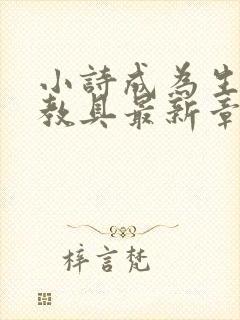 小詩成為生
教具最新章
梓言梵